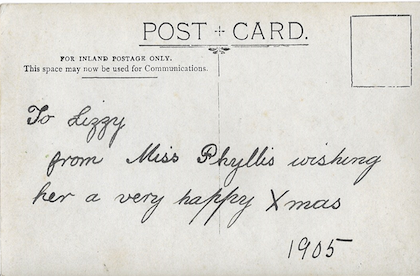 POST CARD.
FOR INLAND POSTAGE ONLY.
This space may now be used for Communications.
To Lizzy
from Miss Phyllis wishing
her a very happy Xmas
1905